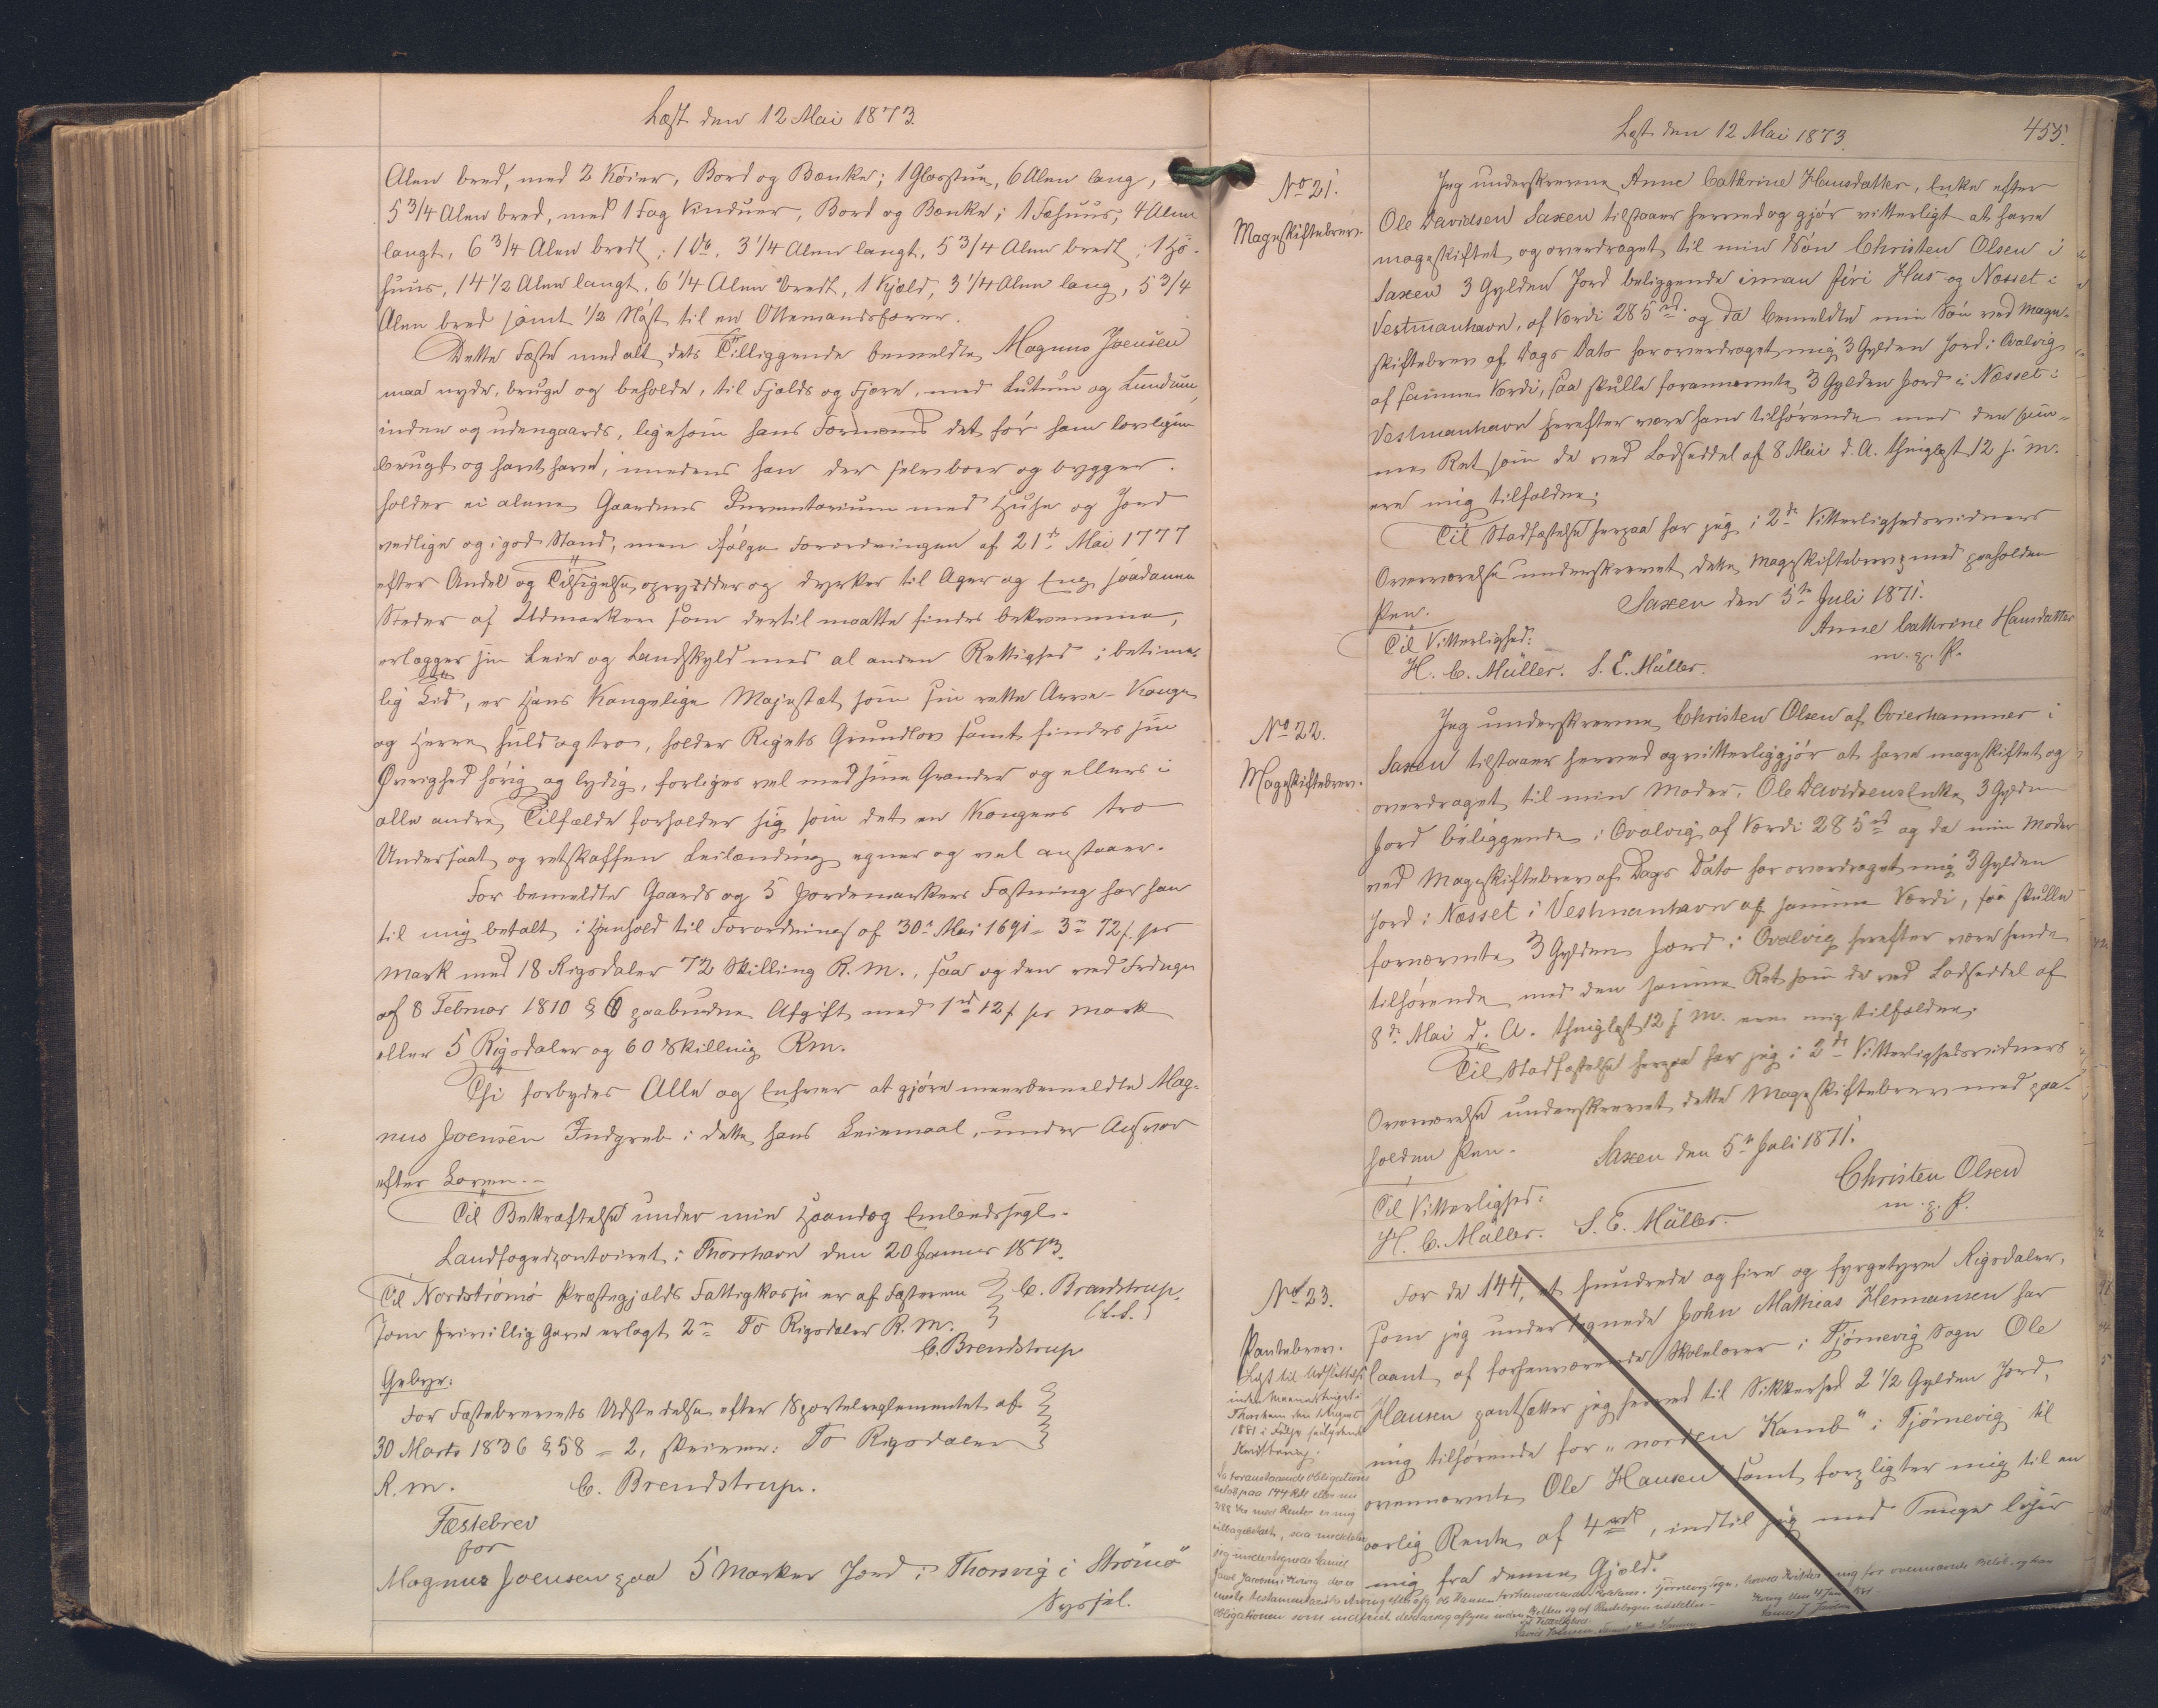 Læst den 12 Mai 1873.
Alen bred, med 2 Köier, Bord og Bænke; 1 Glasstue, 6 Alen lang,
5 3/4 Alen bred, med 1 Fag Vinduer, Bord og Bænke; 1 Fæhuus, 4 Alen
langt, 6 3/4 Alen bredt; 1 Do. 3 1/4 Alen langt, 5 3/4 Alen bredt; 1 Hö-
huus, 14 1/2 Alen langt, 6 1/4 Alen bredt, 1 Kjæld, 3 1/4 Alen lang, 5 3/4
Alen bred samt 1/2 Nöst til en Ottemandsfarer.
Dette Fæste med alt dets Tilliggende bemeldte Magnus Joensen
maa nyde, bruge og beholde, til Fjelds og Fjære, med Lutum og Lundum,
inden og udengaards, ligesom hans Formænd det för ham lovligen
brugt og havt have, imedens han der selv boer og bygger.
holder ei alene Gaardens Inventarium med Huse og Jord
vedlige og i god Stand, men ifölge Forordningen af 21de Mai 1777
efter Andel og Tilsigelse oprydder og dyrker til Ager og Eng saadanne
Steder af Udmarken som dertil maatte findes bekvemme,
erlægger sin Leie og Landskyld med al anden Rettighed i betime-
lig Tid, er Hans Kongelige Majestæt som sin rette Arve-Konge
og Herre huld og tro, holder Rigets Grundlov samt findes sin
Övrighed hörig og lydig, forliges vel med sine Grander og ellers i
alle andre Tilfælde forholder sig som det en Kongens tro
Undersaat og retskaffen Leilænding egner og vel anstaaer.
For bemeldte Gaards og 5 Jordemarkers Fæstning har han
til mig betalt i Henhold til Forordning af 30e Mai 1691 = 3rd 72 s. per
Mark med 18 Rigsdaler 72 Skilling R. M., saa og den ved Frdngn
af 8 Februar 1810 § 6 paabudne Afgift med 1rd 12 s per Mark
eller 5 Rigsdaler og 60 Skilling Rm.
Thi forbydes Alle og Enhver at gjöre meerbemeldte Mag-
nus Joensen Indgreb i dette hans Leiemaal, under Ansvar
efter Loven.-
Til Bekræftelse under min Haand og Embedssegl.
Landfogedcontoiret i Thorshavn den 20 Januar 1873.
Til Nordströmö Præstegjælds Fattigkasse er af Fæsteren
som frivillig Gave erlagt 2rd To Rigsdaler R. M.
C. Brendstrup.
(L.S.)
C. Brendstrup
Gebyr:
For Fæstebrevets Udstedelse efter Sportelreglementet af
30 Marts 1836 § 58 = 2, skriver: To Rigsdaler
R. M. C. Brendstrup.
Fæstebrev
for
Magnus Joensen paa 5 Marker Jord i Thorsvig i Strömö
Syssel.
Læst den 12 Mai 1873.
455.
No 21.
Mageskiftebrev.
Jeg underskrevne Anne Cathrine Hansdatter, Enke efter
Ole Davidsen Saxen tilstaaer herved og gjör vitterligt at have
mageskiftet og overdraget til min Sön Christen Olsen i
Saxen 3 Gylden Jord beliggende innan firi Hus og Næsset i
Vestmanhavn, af Værdi 285 rd. og da bemeldte min Sön ved Mage-
skiftebrev af Dags Dato har overdraget mig 3 Gylden Jord i Qvalvig
af samme Værdi, saa skulle forannævnte 3 Gylden Jord i Næsset i
Vestmanhavn herefter være ham tilhörende med den sam-
me Ret som de ved Lodseddel af 8 Mai d. A. thinglæst 12 s. M.
ere mig tilfaldne.
Til Stadfæstelse herpaa har jeg i 2de Vitterlighedsvidners
Overværelse underskrevet dette Mageskiftebrev med paaholden
Pen.
Saxen den 5te Juli 1871.
Til Vitterlighed:
Anne Cathrine Hansdatter
H. C. Müller. S. E. Müller.
m. p. P.
No 22.
Mageskiftebrev.
Jeg underskrevne Christen Olsen af Qvierhammer i
Saxen tilstaaer herved og vitterliggjör at have mageskiftet og
overdraget til min Moder, Ole Davidsens Enke 3 Gylden
Jord beliggende i Qvalvig af Værdi 285 rd og da min Moder
ved Mageskiftebrev af Dags Dato har overdraget mig 3 Gylden
Jord i Næsset i Vestmanhavn af samme Værdi, saa skulle
fornævnte 3 Gylden Jord i Qvalvig herefter være hende
tilhörende med den samme Ret som de ved Lodseddel af
8de Mai d. A. thinglæst 12 s. M. ere mig tilfaldne.
Til Stadfæstelse herpaa har jeg i 2de Vitterlighedsvidners
Overværelse underskrevet dette Mageskiftebrev med paa-
holden Pen.
Saxen den 5te Juli 1871.
Til Vitterlighed:
Christen Olsen
H. C. Müller. S. E. Müller.
m. p. P.
No 23.
Pantebrev.
For de 144, et hundrede og fire og fyrgetyve Rigsdaler,
som jeg undertegnede John Mathias Hermansen har
laant af forhenværende Skolelærer i Tjörnevig Sogn Ole
Hansen pantsætter jeg herved til Sikkerhed 2 1/2 Gylden Jord,
mig tilhörende for „norden Kamb" i Tjörnevig til
ovennævnte Ole Hansen samt forpligter mig til en
aarlig Rente af 4 rd, indtil jeg med Penge löser
mig fra denne Gjæld.
Læst til Udslettelse
Thorshavn den 1 August
1881 i Fölge
Da foranstaaende Obligations
paa 144 Rd eller nu
288 Kr med Renter er mig
tilbagebetalt, saa meddeler
jeg undertegnede